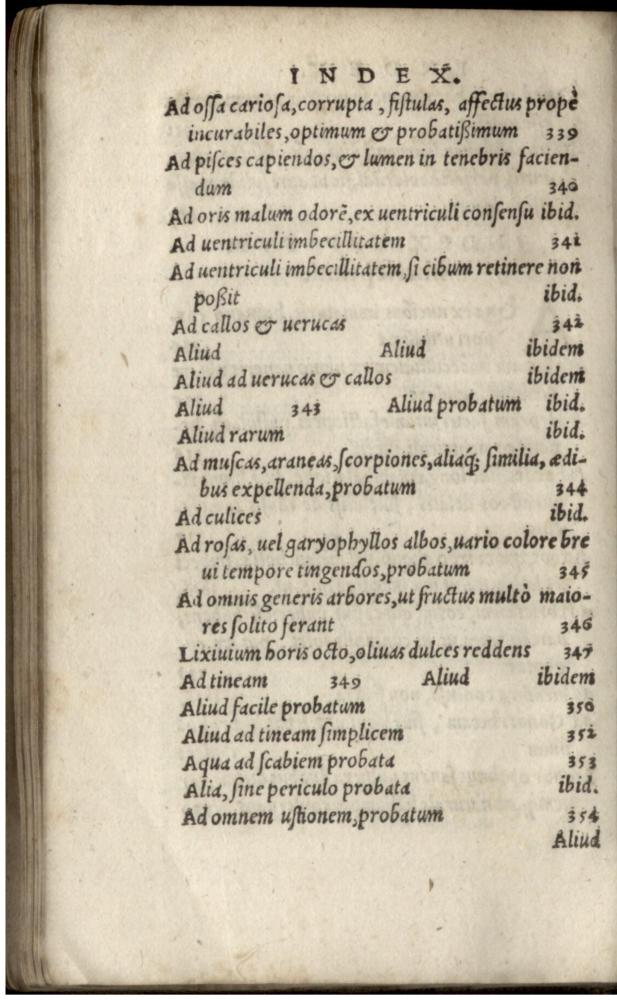 INDEX.
Ad oſſa carioſa, corrupta, fiſtulas, affectus propè
incurabiles, optimum & probatißimum 339
Ad piſces capiendos, & lumen in tenebris facien-
dum 340
Ad oris malum odorē, ex uentriculi conſenſu ibid.
Ad uentriculi imbecillitatem 341
Ad uentriculi imbecillitatem, ſi cibum retinere non
poßit ibid.
Ad callos & uerucas 342
Aliud Aliud ibidem
Aliud ad uerucas & callos ibidem
Aliud 343 Aliud probatum ibid.
Aliud rarum ibid.
Ad muſcas, araneas, ſcorpiones, aliaq́; ſimilia, ædi-
bus expellenda, probatum 344
Ad culices ibid.
Ad roſas, uel garyophyllos albos, uario colore bre
ui tempore tingendos, probatum 345
Ad omnis generis arbores, ut fructus multò maio-
res ſolito ferant 346
Lixiuium horis octo, oliuas dulces reddens 347
Ad tineam 349 Aliud ibidem
Aliud facile probatum 350
Aliud ad tineam ſimplicem 352
Aqua ad ſcabiem probata 353
Alia, ſine periculo probata ibid.
Ad omnem uſtionem, probatum 354
Aliud